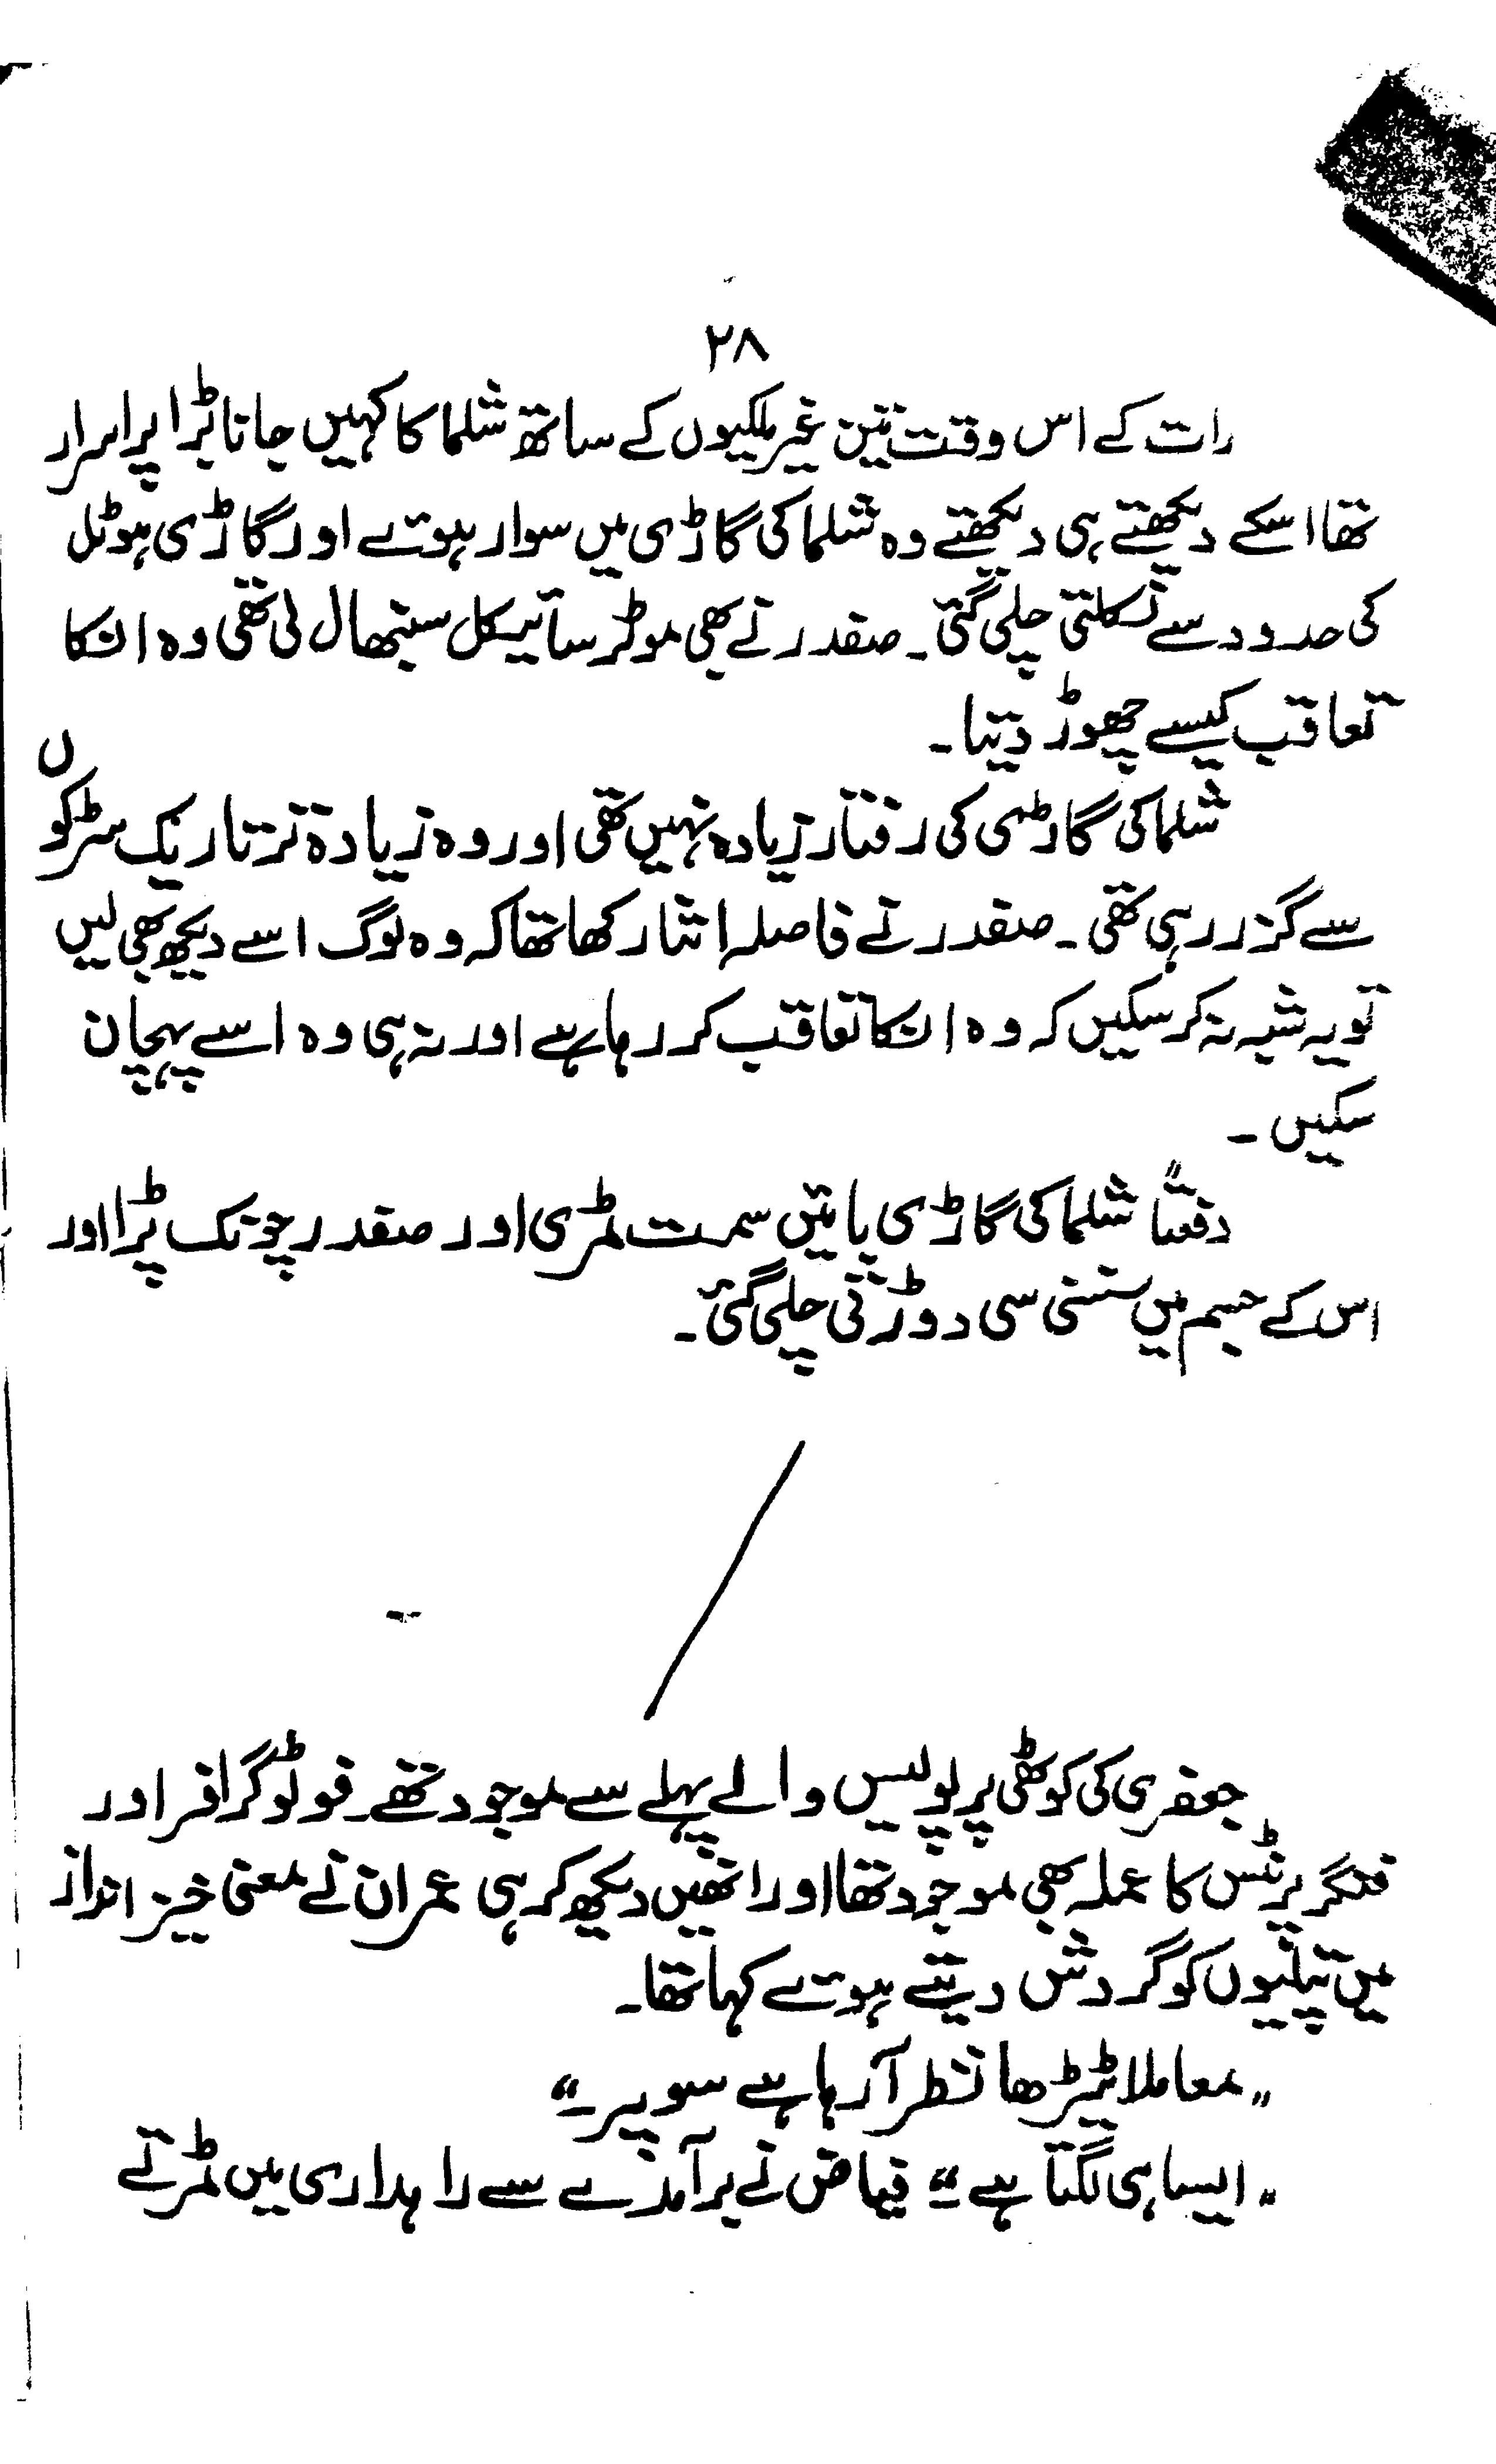 ۲۸
رات کے اس وقت تین غیر ملکیوں کے ساتھ شلما کا کہیں جانا بڑا پراسرار
تھا اسکے دیکھتے ہی دیکھتے وہ شلما کی گاڑی میں سوار ہوئے اور گاڑی ہوٹل
کی حدود سے نکلتی چلی گئی۔ صفدر نے بھی موٹر سائیکل سنبھال لی تھی وہ انکا
تعاقب کیسے چھوڑ دیتا۔
شلما کی گاڑی کی رفتار زیادہ نہیں تھی اور وہ زیادہ تر تاریک سڑکوں
سے گزر رہی تھی۔ صفدر نے فاصلہ اتنا رکھا تھا کہ وہ لوگ اسے دیکھ بھی لیں
تو یہ شبہ نہ کر سکیں کہ وہ انکا تعاقب کر رہا ہے اور نہ ہی وہ اسے پہچان
سکیں۔
دفعتاً شلما کی گاڑی بائیں سمت مڑی اور صفدر چونک پڑا اور
اس کے جسم میں سنسنی سی دوڑتی چلی گئی۔
جعفری کی کوٹھی پر پولیس والے پہلے سے موجود تھے۔ فوٹو گرافر اور
فنگر پرنٹس کا عملہ بھی موجود تھا اور انھیں دیکھ کر ہی عمران نے معنی خیز انداز
میں پتلیوں کو گردش دیتے ہوئے کہا تھا۔
„معاملا ٹیڑھا نظر آ رہا ہے سوپر۔“
„ایسا ہی لگتا ہے“ فیاض نے برآمدے سے راہداری میں مڑتے